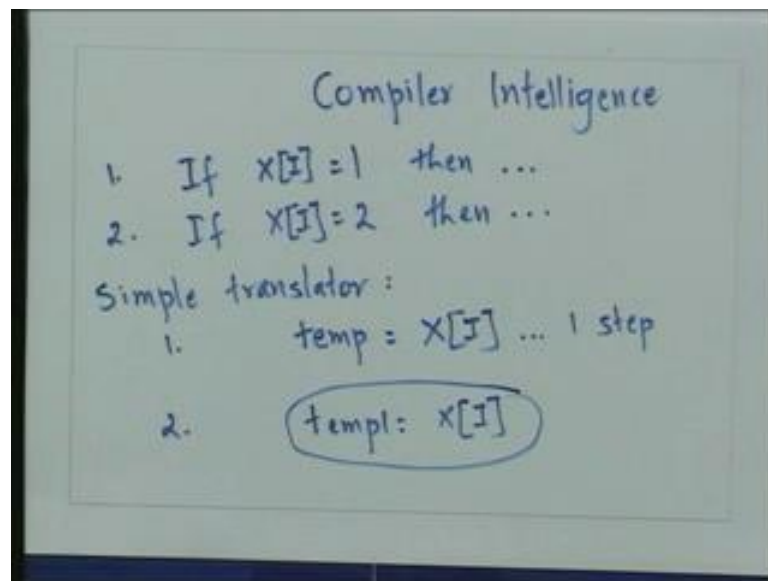 Compiler Intelligence
1. If X[I] = 1 then ...
2. If X[I] = 2 then ...
Simple translator :
1. temp = X[I] ... 1 step
2. temp1 = X[I]